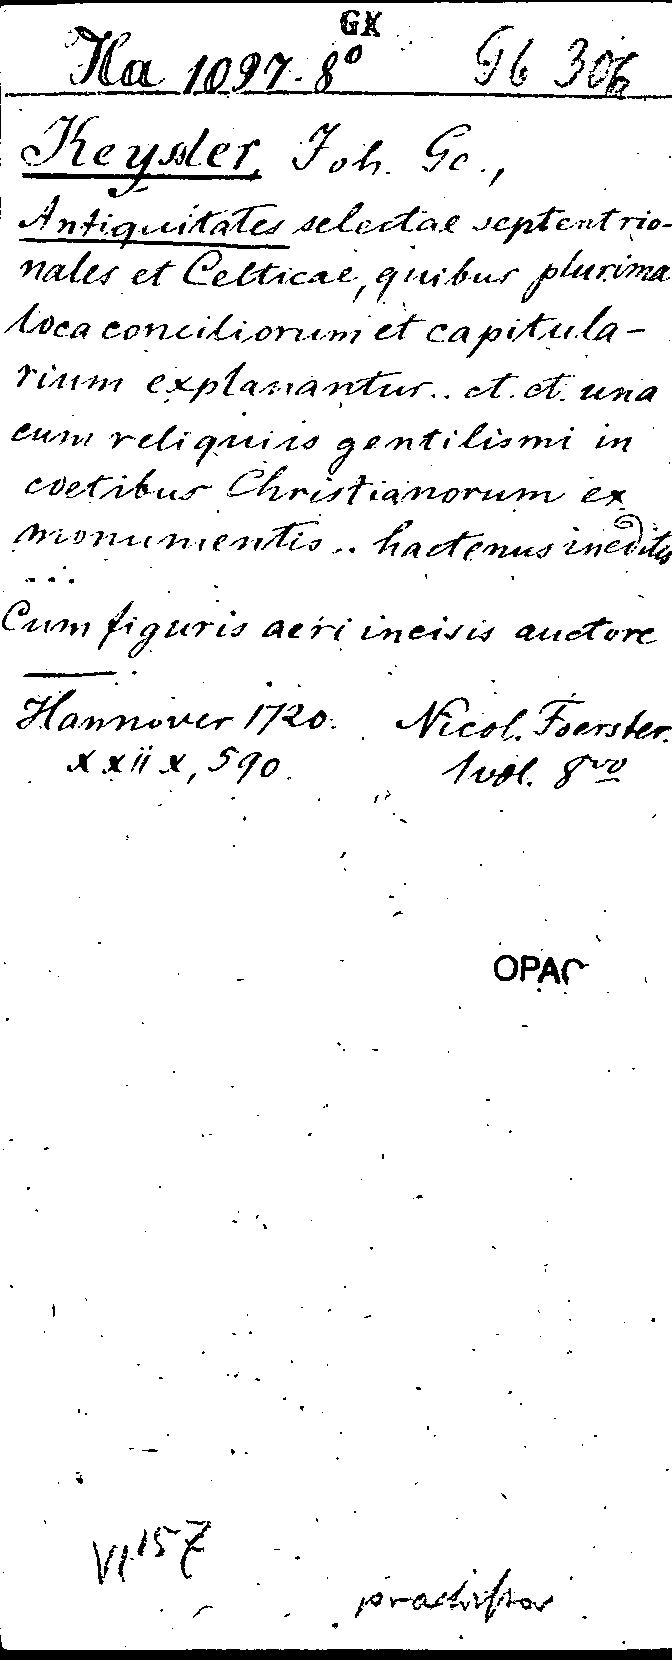 GX
Ha 1097.8° Gb 306
Keyssler, Joh. Ge.,
Antiquitates selectae septentrio-
nales et Celticae, quibus plurima
loca conciliorum et capitula-
rium explanantur.. et. et. una
cum reliquiis gentilismi in
coetibus Christianorum ex
monumentis.. hactenus ineditis
...
Cum figuris aeri incisis auctore
Hannover 1720. Nicol. Foerster.
xxiix, 590. 1 vol. 8vo
OPAC
VI 15 Z